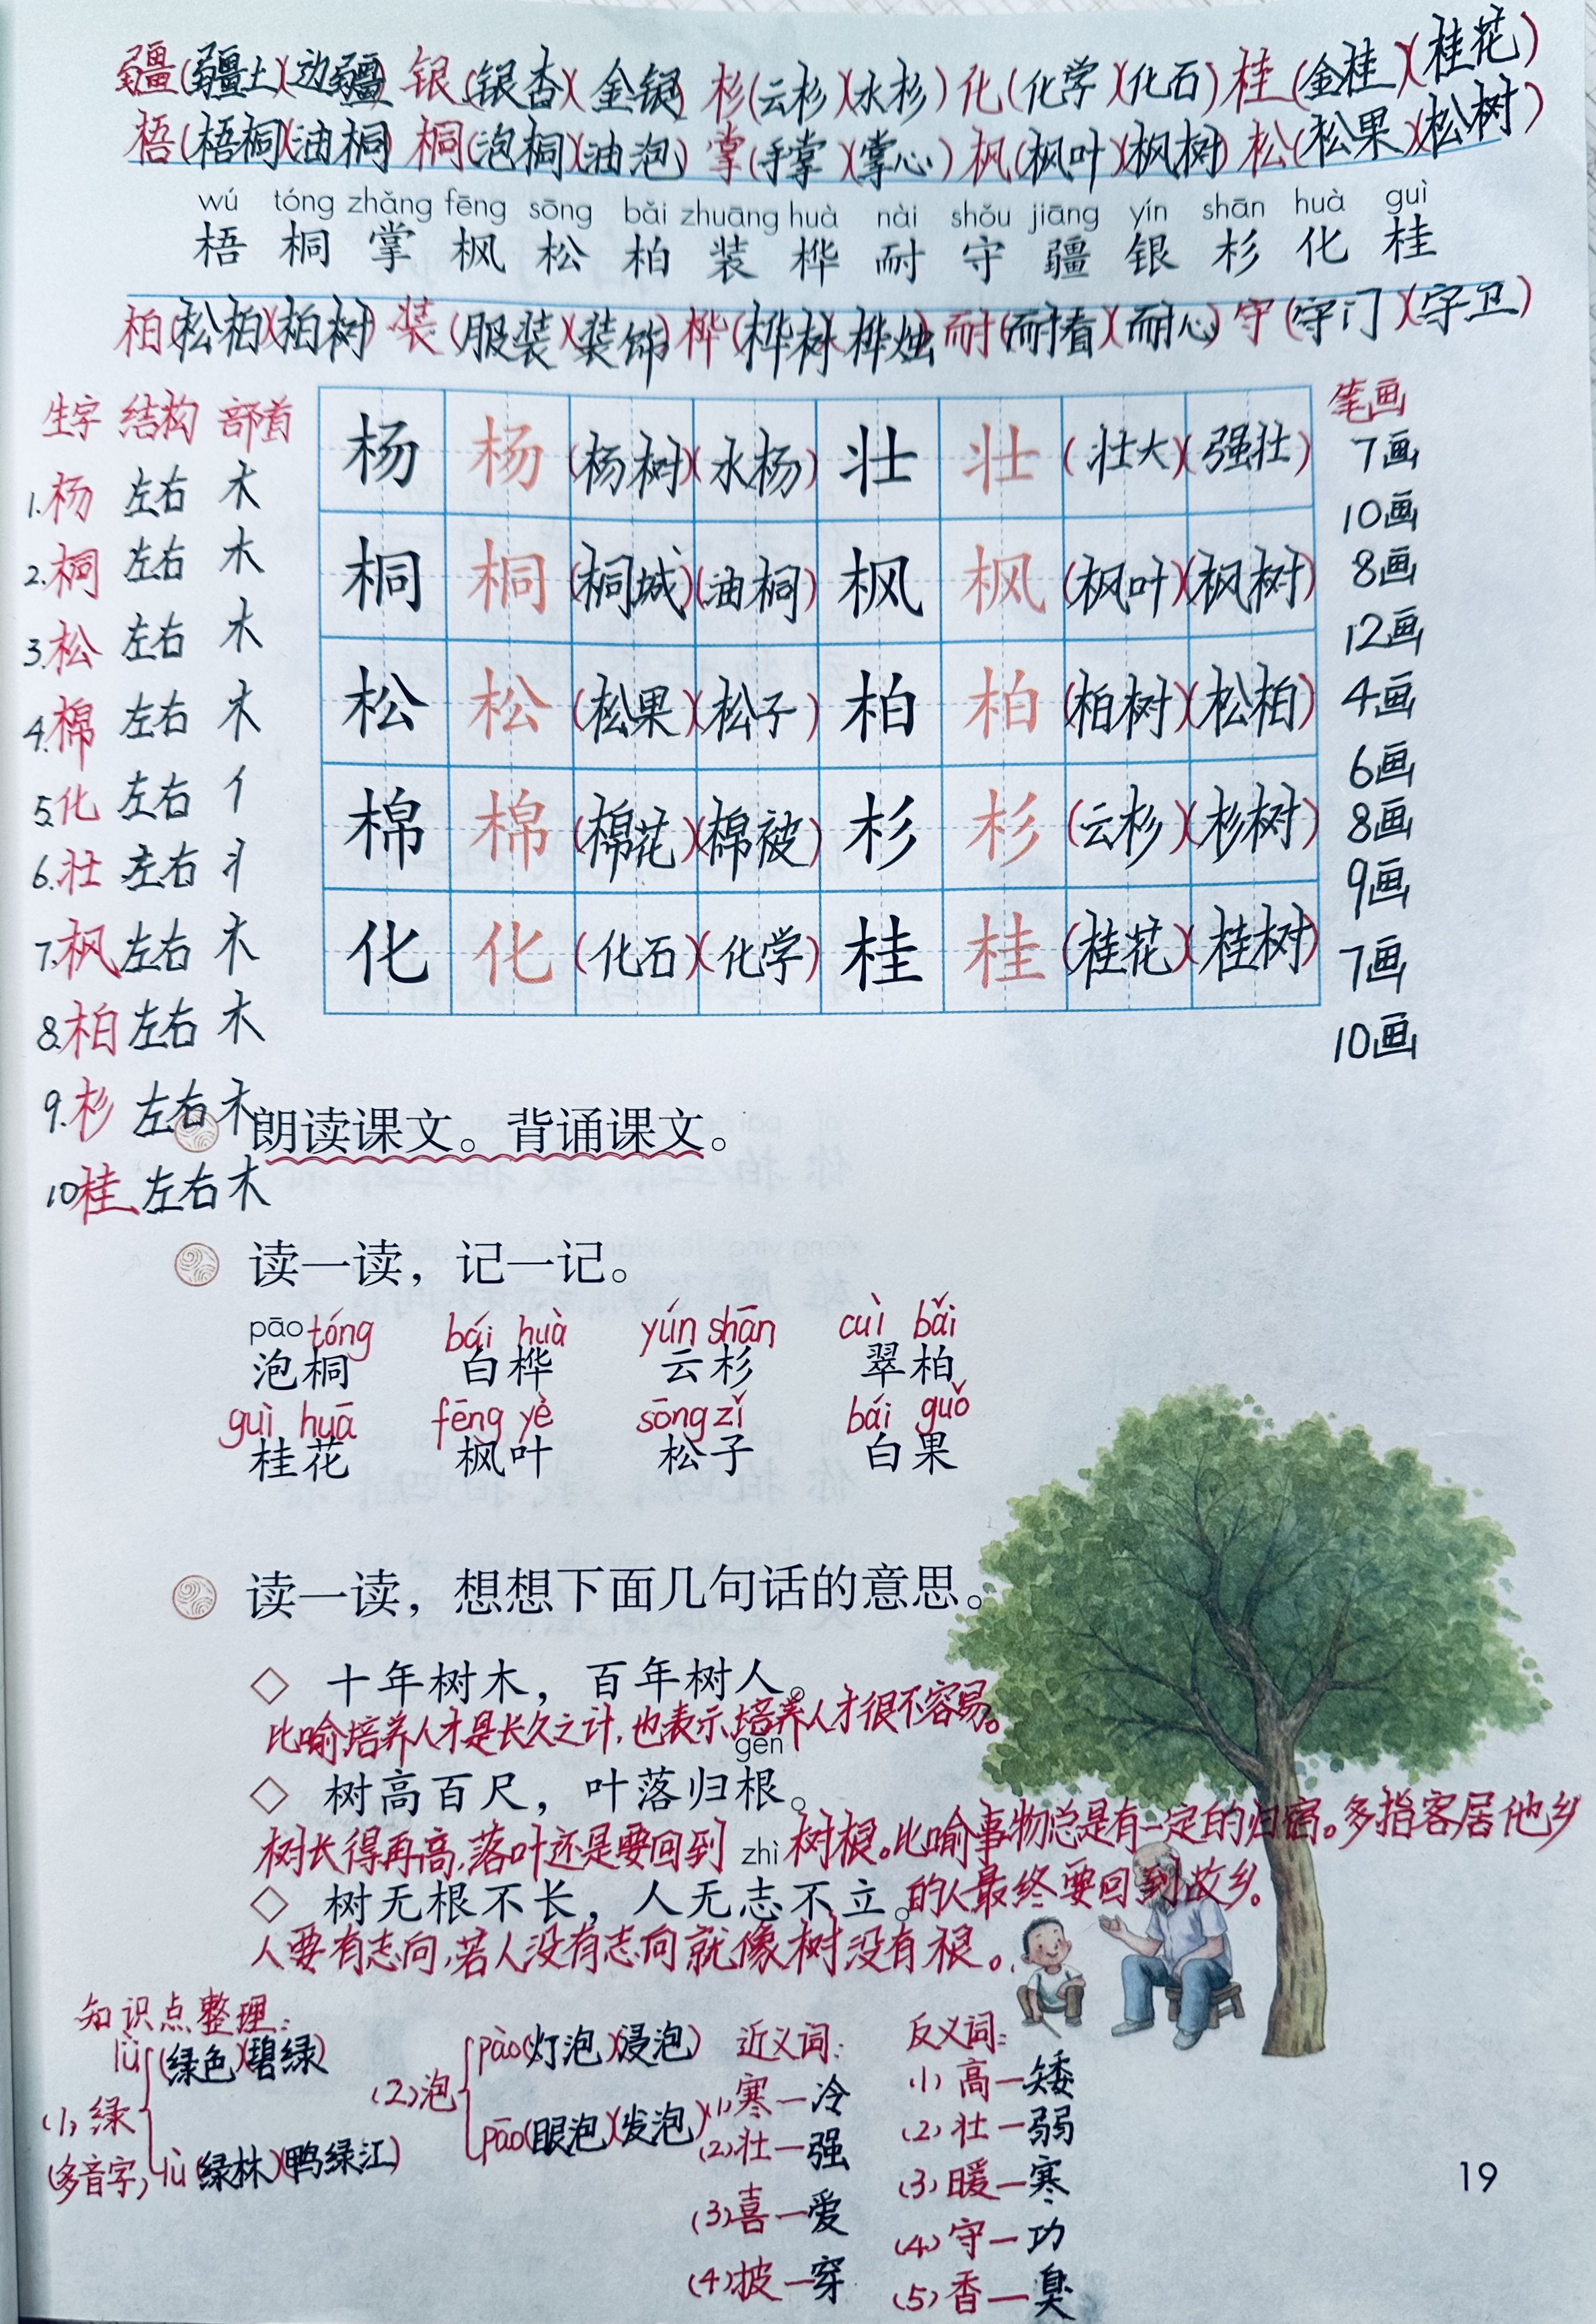 疆(疆土)(边疆) 银(银杏)(金银) 杉(云杉)(水杉) 化(化学)(化石) 桂(金桂)(桂花)
梧(梧桐)(油桐) 桐(泡桐)(油泡) 掌(手掌)(掌心) 枫(枫叶)(枫树) 松(松果)(松树)
wú tóng zhǎng fēng sōng bǎi zhuāng huà nài shǒu jiāng yín shān huà guì
梧 桐 掌 枫 松 柏 装 桦 耐 守 疆 银 杉 化 桂
柏(松柏)(柏树) 装(服装)(装饰) 桦(桦树)(桦烛) 耐(耐看)(耐心) 守(守门)(守卫)
生字 结构 部首
1.杨 左右 木
2.桐 左右 木
3.松 左右 木
4.棉 左右 木
5.化 左右 亻
6.壮 左右 丬
7.枫 左右 木
8.柏 左右 木
9.杉 左右 木
10.桂 左右 木
杨 杨 (杨树)(水杨) 壮 壮 (壮大)(强壮)
桐 桐 (桐城)(油桐) 枫 枫 (枫叶)(枫树)
松 松 (松果)(松子) 柏 柏 (柏树)(松柏)
棉 棉 (棉花)(棉被) 杉 杉 (云杉)(杉树)
化 化 (化石)(化学) 桂 桂 (桂花)(桂树)
笔画
7画
10画
8画
12画
4画
6画
8画
9画
7画
10画
朗读课文。背诵课文。
读一读，记一记。
pāo tóng bái huà yún shān cuì bǎi
泡桐 白桦 云杉 翠柏
guì huā fēng yè sōng zǐ bái guǒ
桂花 枫叶 松子 白果
读一读，想想下面几句话的意思。
◇ 十年树木，百年树人。
比喻培养人才是长久之计,也表示培养人才很不容易。
gēn
◇ 树高百尺，叶落归根。
树长得再高,落叶还是要回到树根。比喻事物总是有一定的归宿。多指客居他乡
zhì
◇ 树无根不长，人无志不立。
的人最终要回到故乡。
人要有志向,若人没有志向就像树没有根。
知识点整理:
(1)绿
(多音字)
lǜ(绿色)(碧绿)
lù(绿林)(鸭绿江)
(2)泡
pào(灯泡)(浸泡)
pāo(眼泡)(发泡)
近义词:
(1)寒—冷
(2)壮—强
(3)喜—爱
(4)披—穿
反义词:
(1)高—矮
(2)壮—弱
(3)暖—寒
(4)守—功
(5)香—臭
19